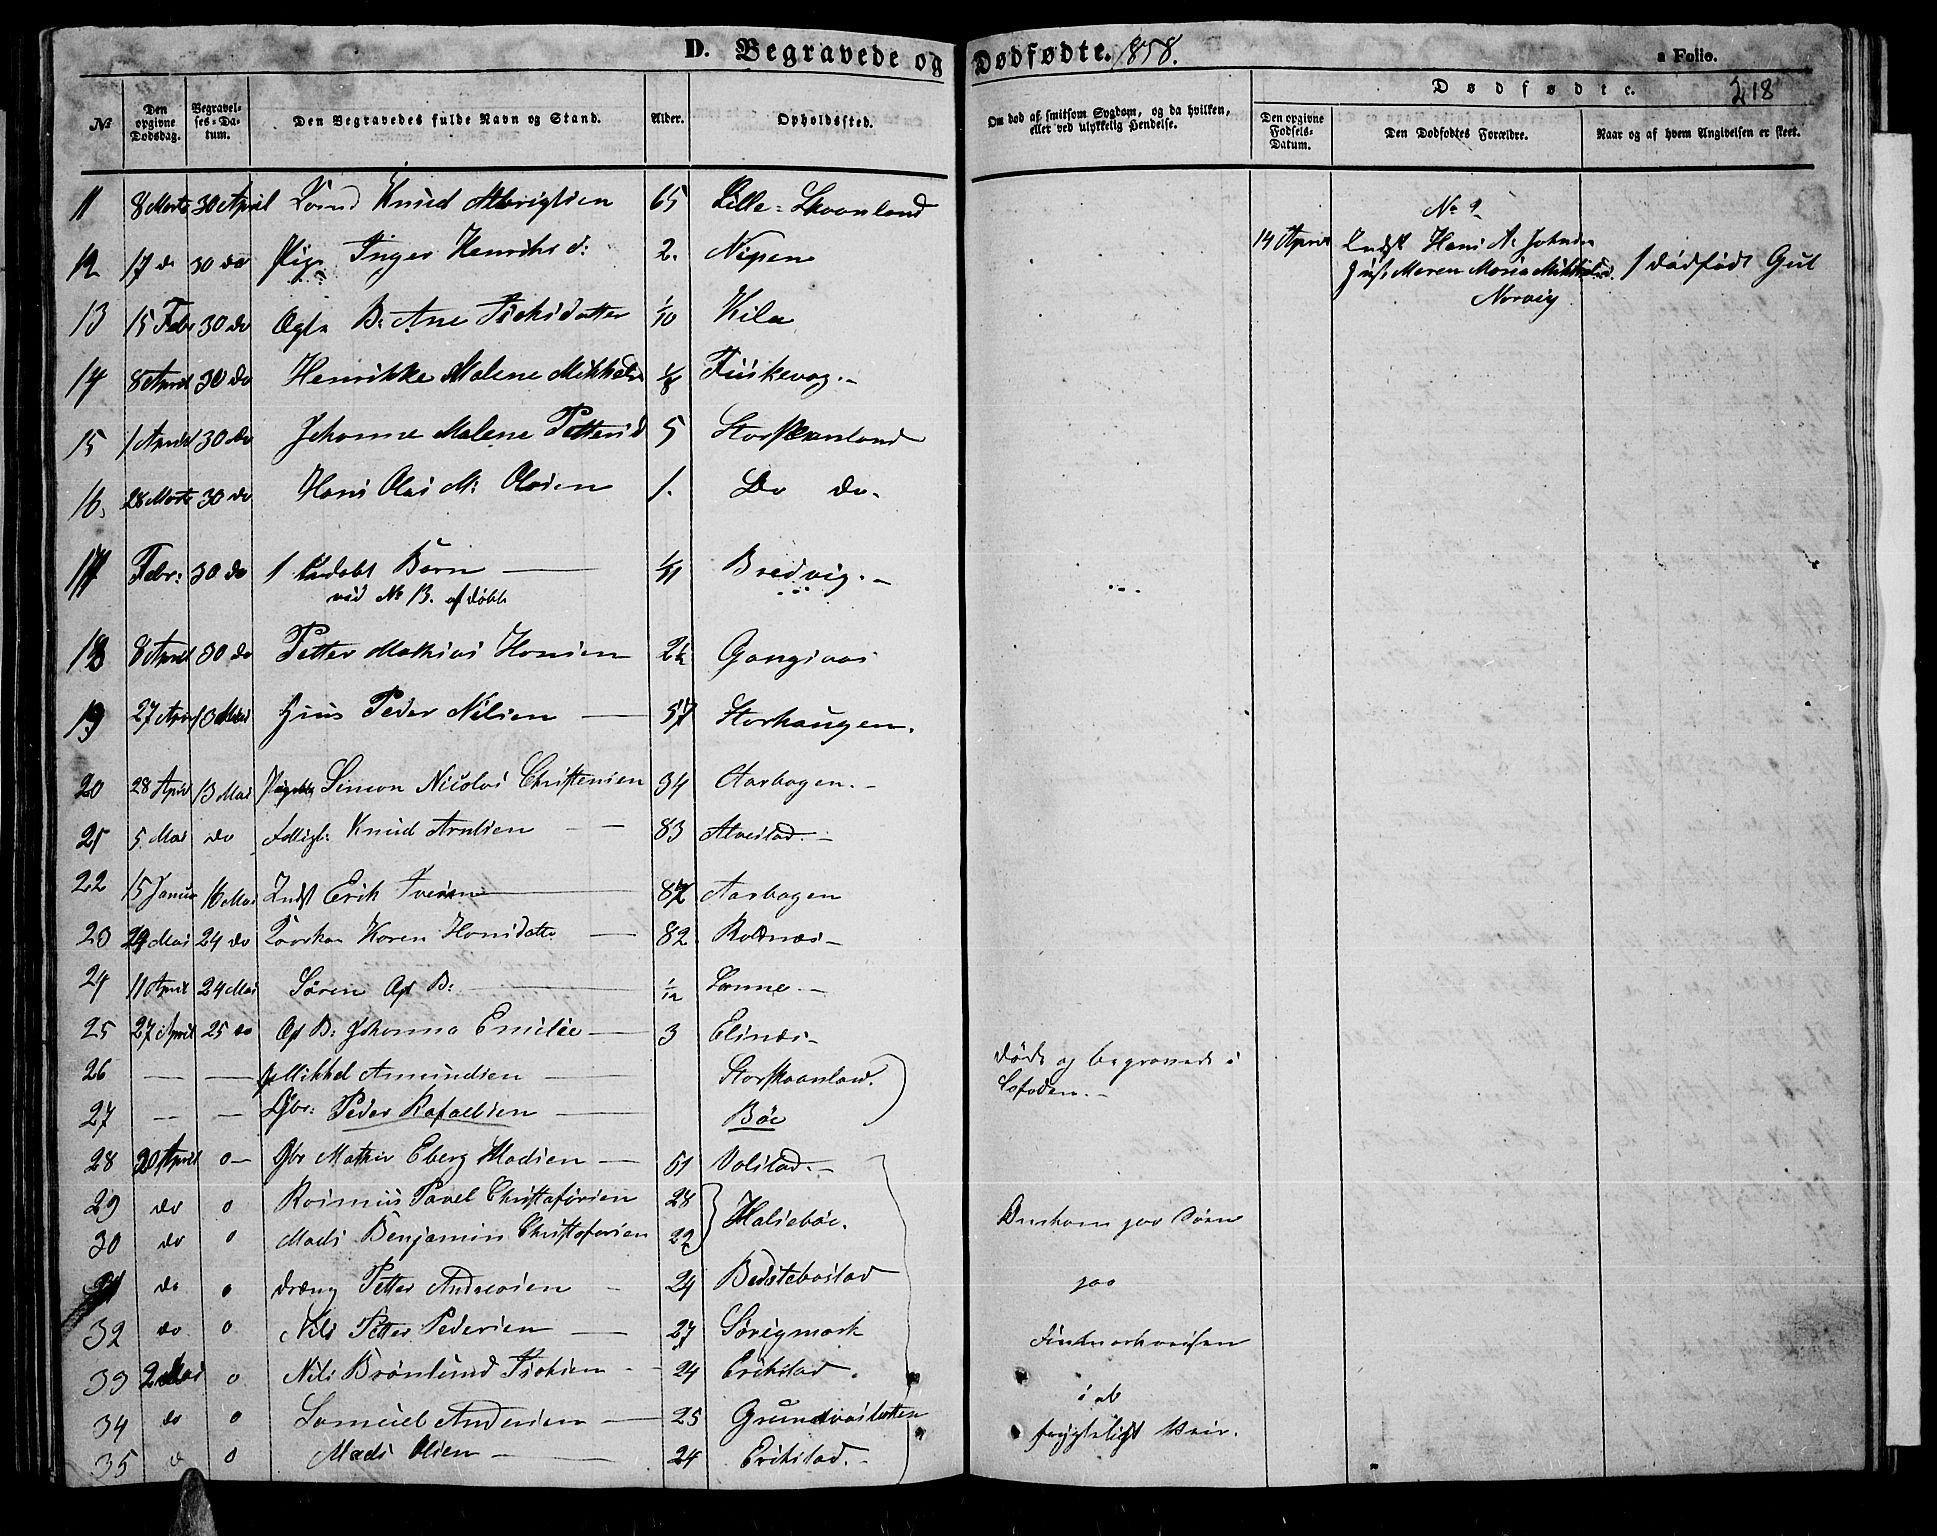 D. Begravede og Dødfødte. 1858.
a Folio.
218
No
Den opgivne Dødsdag.
Begravelses-Datum.
Den Begravedes fulde Navn og Stand.
Alder.
Opholdssted.
Om død af smitsom Sygdom, og da hvilken, eller ved ulykkelig Hendelse.
Dødfødte.
Den opgivne Fødsels-Datum.
Den Dødfødtes Forældre.
Naar og af hvem Angivelsen er skeet.
11 8 Marts 30 April Knud Albrigtsen 65 Lille-Skaanland
12 17 do 30 do Pige Inger Henriksd: 2. Nipen
13 15 Febr 30 do Ægte B: Ane Isaksdatter 1/10 Kila
14 8 April 30 do Henrikke Malene Mikkelsd 1/8 Fiskevog.-
15 1 April 30 do Johanne Malene Pettersd 5 Storskaanland
16. 28 Marts 30 do Hans Olai M: Olsen 1. Do do.
17 Febr: 30 do 1 udøbt Børn 1/4 Bredvig.-
vid No 13. af døbte
18 8 April 30 do Petter Mathias Hansen 2 1/2 Gangsaas
19 27 April 13 Mai Huus Peder Nilsen 57 Storhaugen.
20 28 April 13 Mai Simon Nicolai Christensen 34 Aarbogen.-
21 5 Mai do Knud Arntsen 83 Alvestad.-
22 15 Januar 16 Mai Indst Erik Iversen Aarbogen
23 Mai 24 do Karen Hansdatter 82 Rodnæs-
24 11 April 24 Mai Søren Æg B: 1/12 Sanne.-
25 27 April 25 do Æg B: Johanna Emilie 3 Elinæs-
26 Mikkel Amundsen Storskaanland.
27 Gbr: Peder Rafaelsen Böe
døde og begravede i
Lofoden.-
28 20 April 0 Gbr Mathis Eberg Madsen 51 Volstad.-
29 do 0 Rasmus Pavel Christofersen 28
30 do 0 Mads Benjamin Christofersen 22 Halsebøe.
Omkom paa Søen
31 do 0 dræng Petter Andreasen 24 Bedstebostad
paa
32 do 0 Nils Petter Pedersen 27 Sørigmark
Finmarkreisen
33 2 Mai 0 Nils Brønlund Isaksen 24 Erikstad.
34 do 0 Samuel Andersen 25 Grundvasletten
i et
frygteligt Veir.
35 d 0 Mads Olsen 24 Erikstad.-
No 2
14 April Indst Hans A: Johnsen
Hust Maren Maria Mikkelsd.
Norvig
1 dødfødt Gut